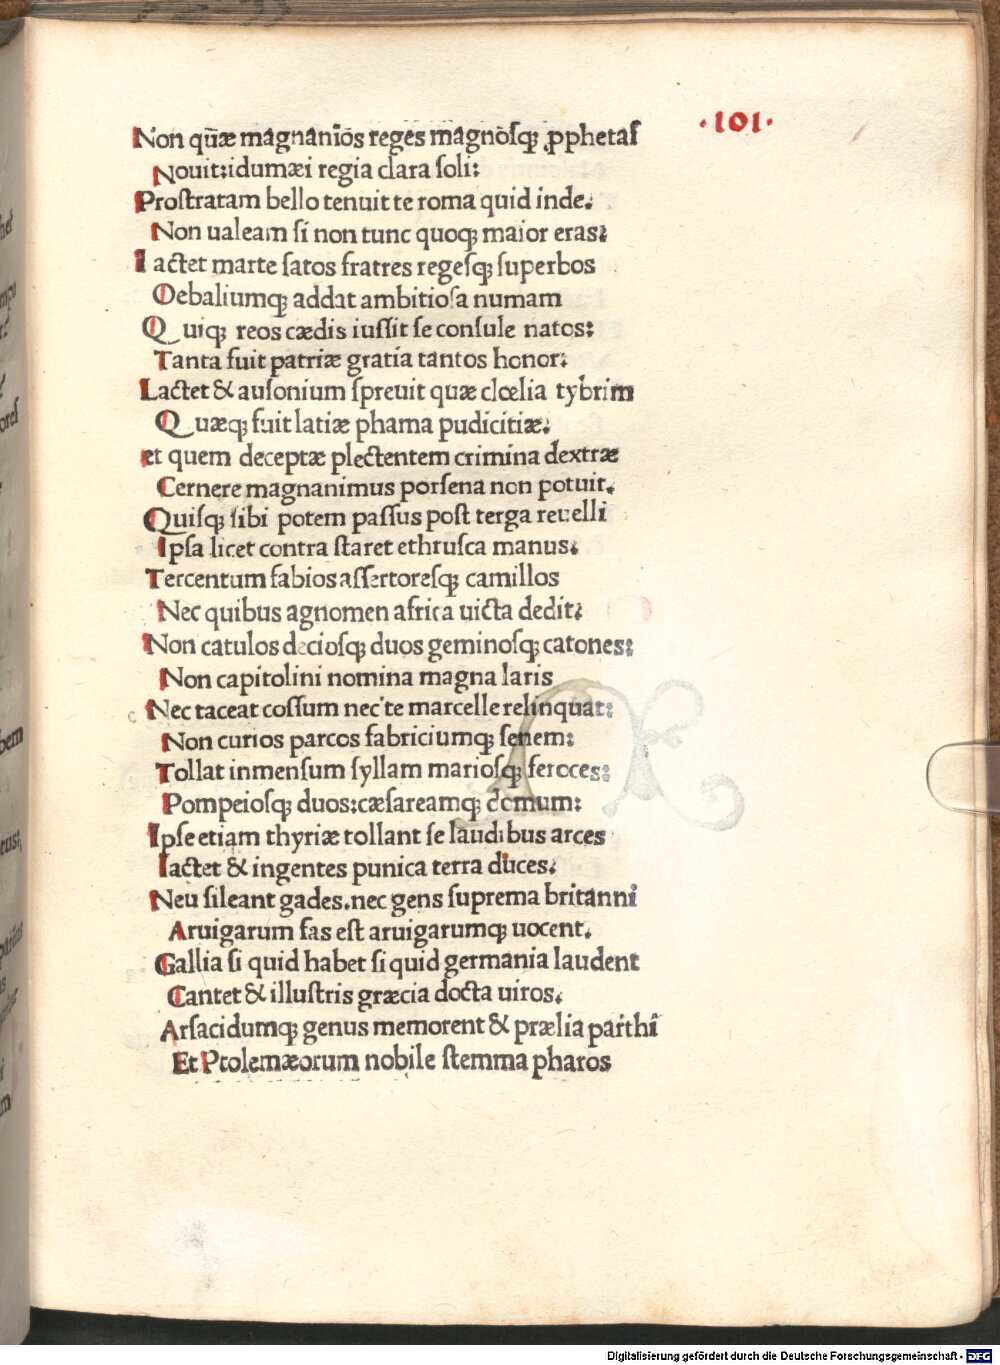 ·101·
Non quǣ magnanīos reges magnosqꝫ ꝓphetas
Nouit:idumæi regia clara soli:
Prostratam bello tenuit te roma quid inde.
Non ualeam si non tunc quoqꝫ maior eras:
Iactet marte satos fratres regesqꝫ superbos
Oebaliumqꝫ addat ambitiosa numam
Quiqꝫ reos cædis iussit se consule natos:
Tanta fuit patriæ gratia tantos honor:
Lactet & ausonium spreuit quæ clœlia tybrim
Quæqꝫ fuit latiæ phama pudicitiæ:
et quem deceptæ plectentem crimina dextræ
Cernere magnanimus porsena non potuit.
Quisqꝫ sibi potem passus post terga reuelli
Ipsa licet contra staret ethrusca manus:
Tercentum fabios assertoresqꝫ camillos
Nec quibus agnomen africa uicta dedit:
Non catulos deciosqꝫ duos geminosqꝫ catones:
Non capitolini nomina magna laris
Nec taceat cossum nec te marcelle relinquat:
Non curios parcos fabriciumqꝫ senem:
Tollat inmensum syllam mariosqꝫ feroces:
Pompeiosqꝫ duos:cæsareamqꝫ domum:
Ipse etiam thyriæ tollant se laudibus arces
Iactet & ingentes punica terra duces:
Neu sileant gades.nec gens suprema britanni
Aruigarum fas est aruigarumqꝫ uocent.
Gallia si quid habet si quid germania laudent
Cantet & illustris græcia docta uiros.
Arsacidumqꝫ genus memorent & prælia parthi
Et Ptolemæorum nobile stemma pharos
Digitalisierung gefördert durch die Deutsche Forschungsgemeinschaft - DFG